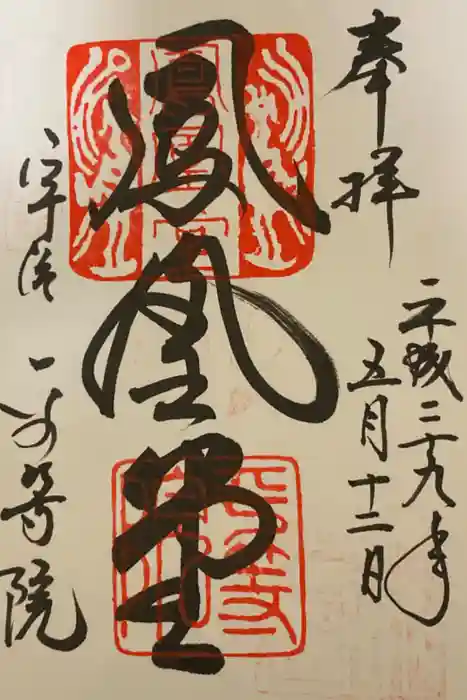 奉拝
平成二十九年
五月十二日
鳳凰堂
宇治 平等院